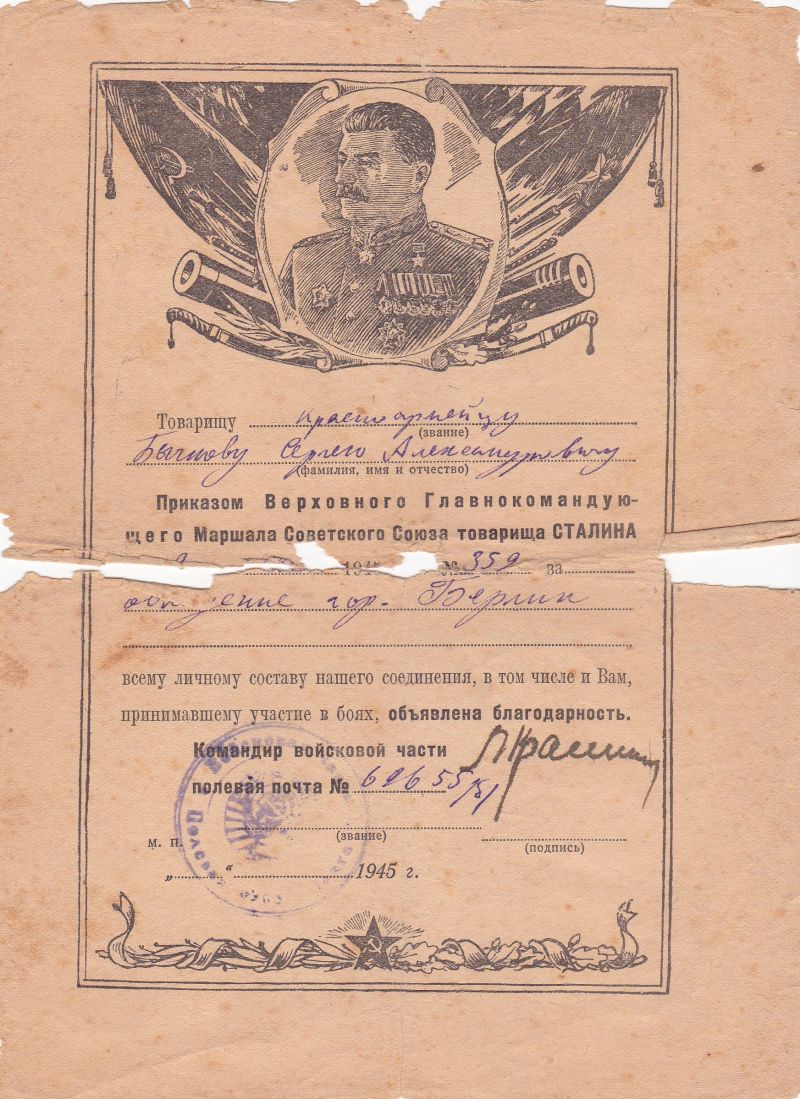 Товарищу красноармейцу
(звание)
Бычкову Сергею Александровичу
(фамилия, имя и отчество)
Приказом Верховного Главнокомандую-
щего Маршала Советского Союза товарища СТАЛИНА
1945 № 359 за
гор. Берлин
всему личному составу нашего соединения, в том числе и Вам,
принимавшему участие в боях, объявлена благодарность.
Командир войсковой части
полевая почта №
(звание)
м. п.
(подпись)
„ “ 1945 г.